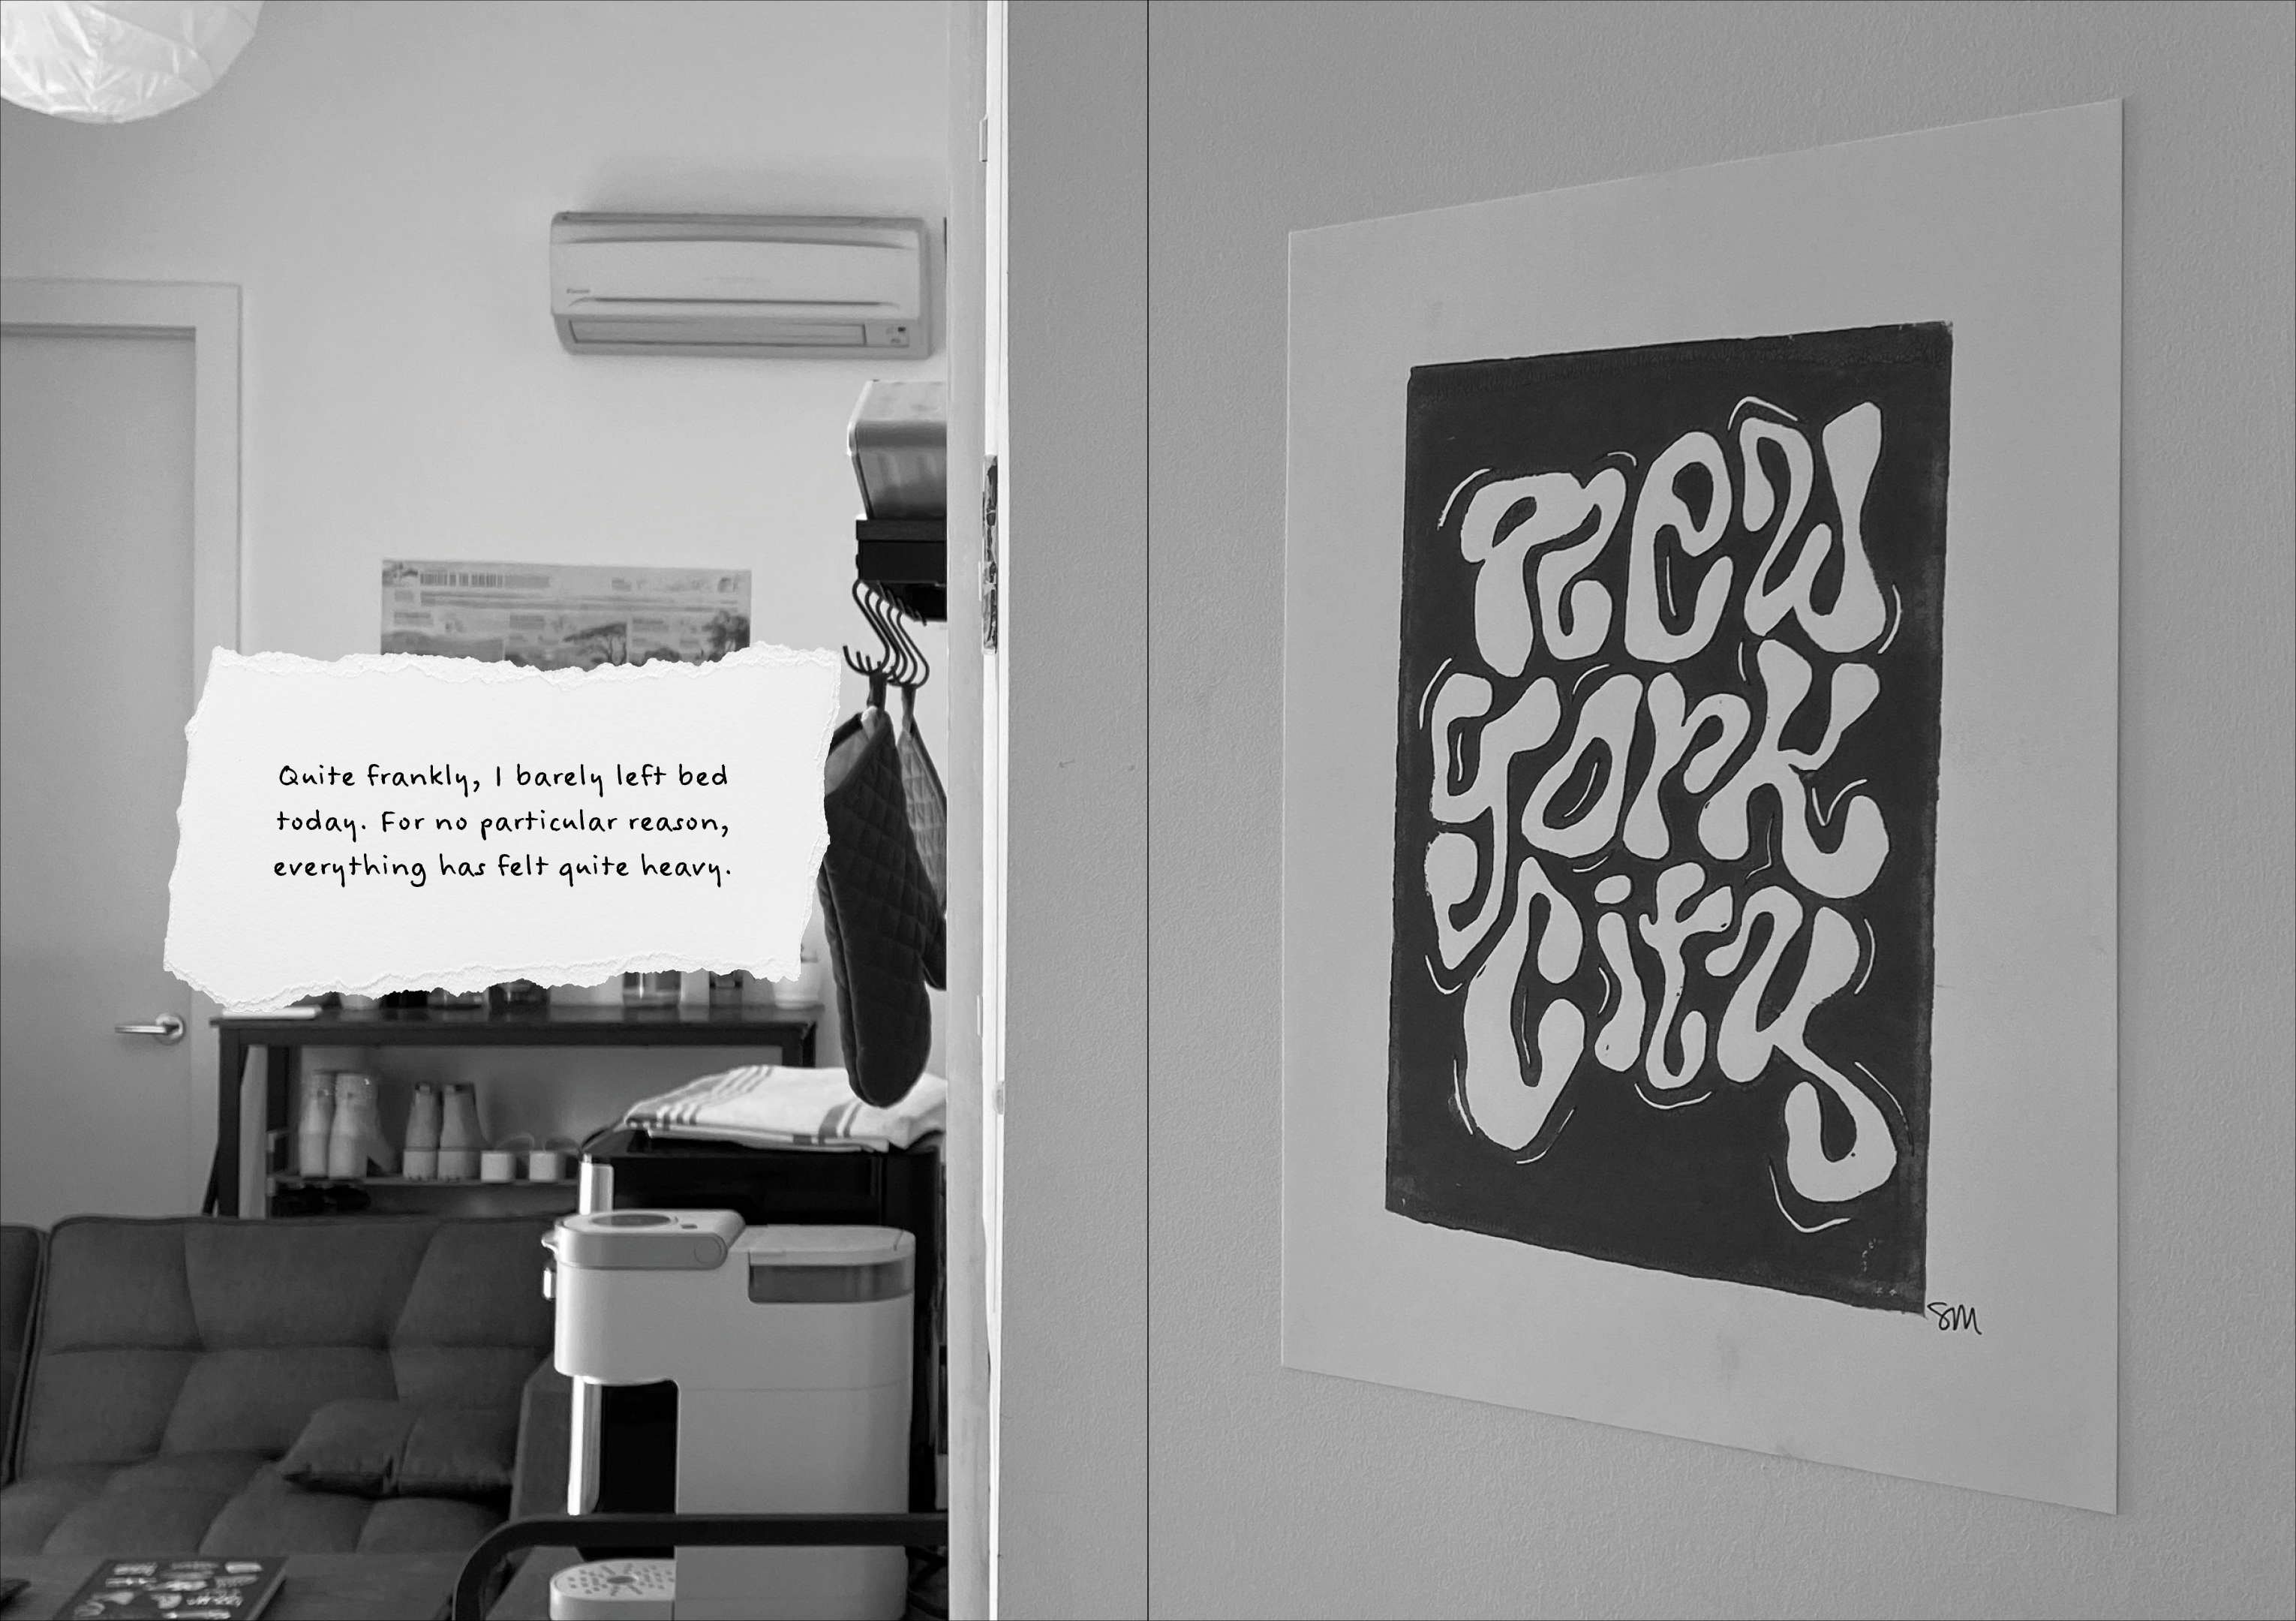 Quite frankly, I barely left bed
today. For no particular reason,
everything has felt quite heavy.
new
york
city
SM